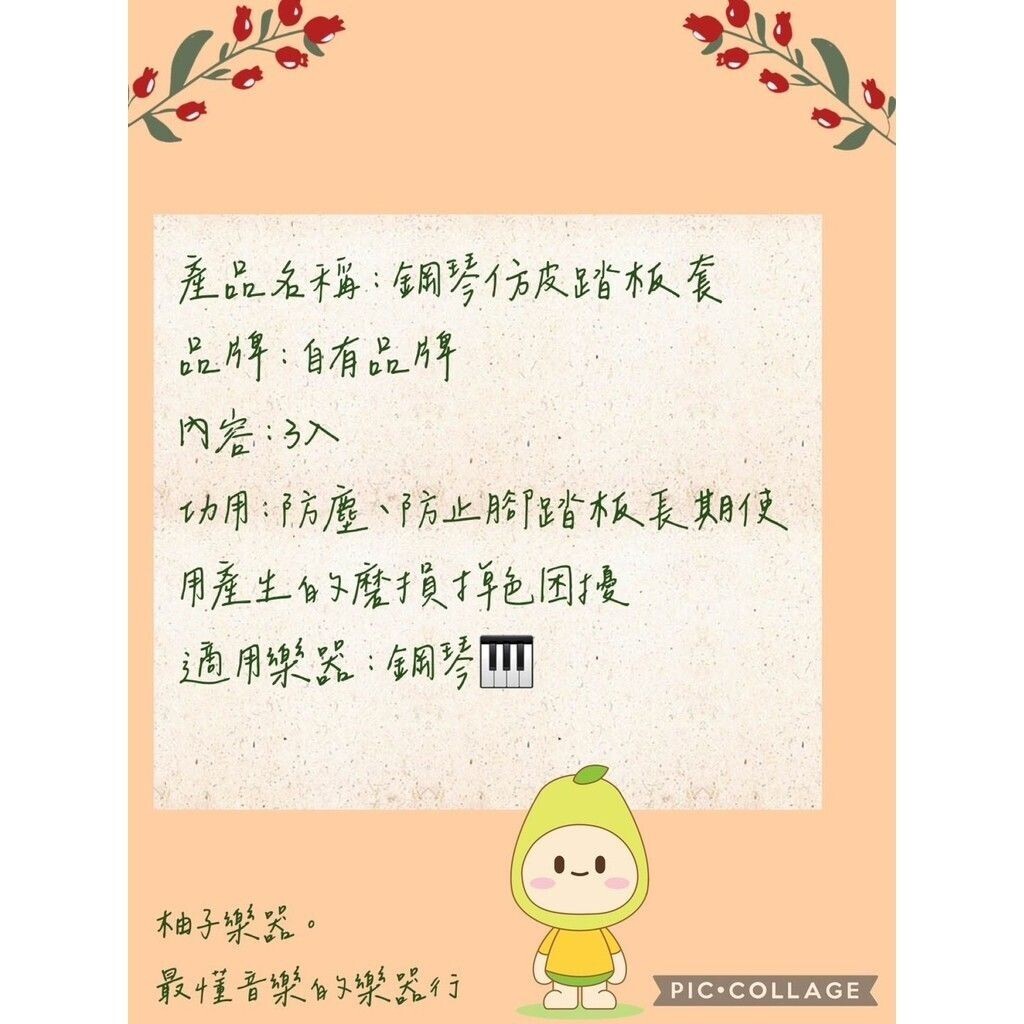 產品名稱:鋼琴仿皮踏板套
品牌:自有品牌
內容:3入
功用:防塵、防止腳踏板長期使
用產生的磨損掉色困擾
適用樂器:鋼琴🎹
柚子樂器。
最懂音樂的樂器行
PIC•COLLAGE